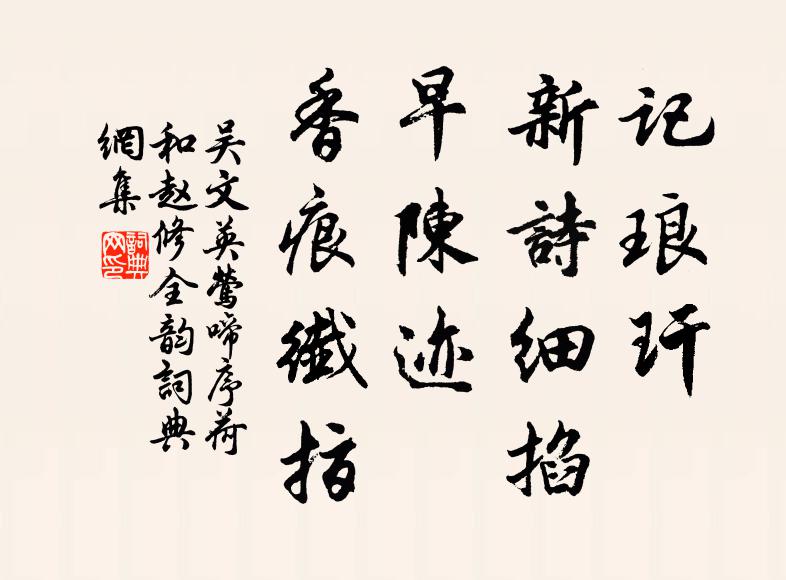 记琅玕
新詩细掐
早陳迹
香痕纖指
吴文英莺啼序荷
和赵修全韵詞典
網集
詞典
网印